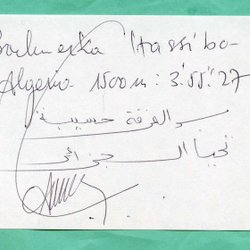 Boulmerka Hassiba
Algeria 1500m: 3'55"27
بوالمرقة حسيبة
تحيا الجزائر